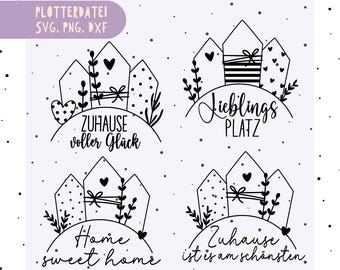 PLOTTERDATEI
SVG, PNG, DXF
ZUHAUSE
voller Glück
Lieblings
PLATZ
Home
sweet home
Zuhause
ist es am schönsten